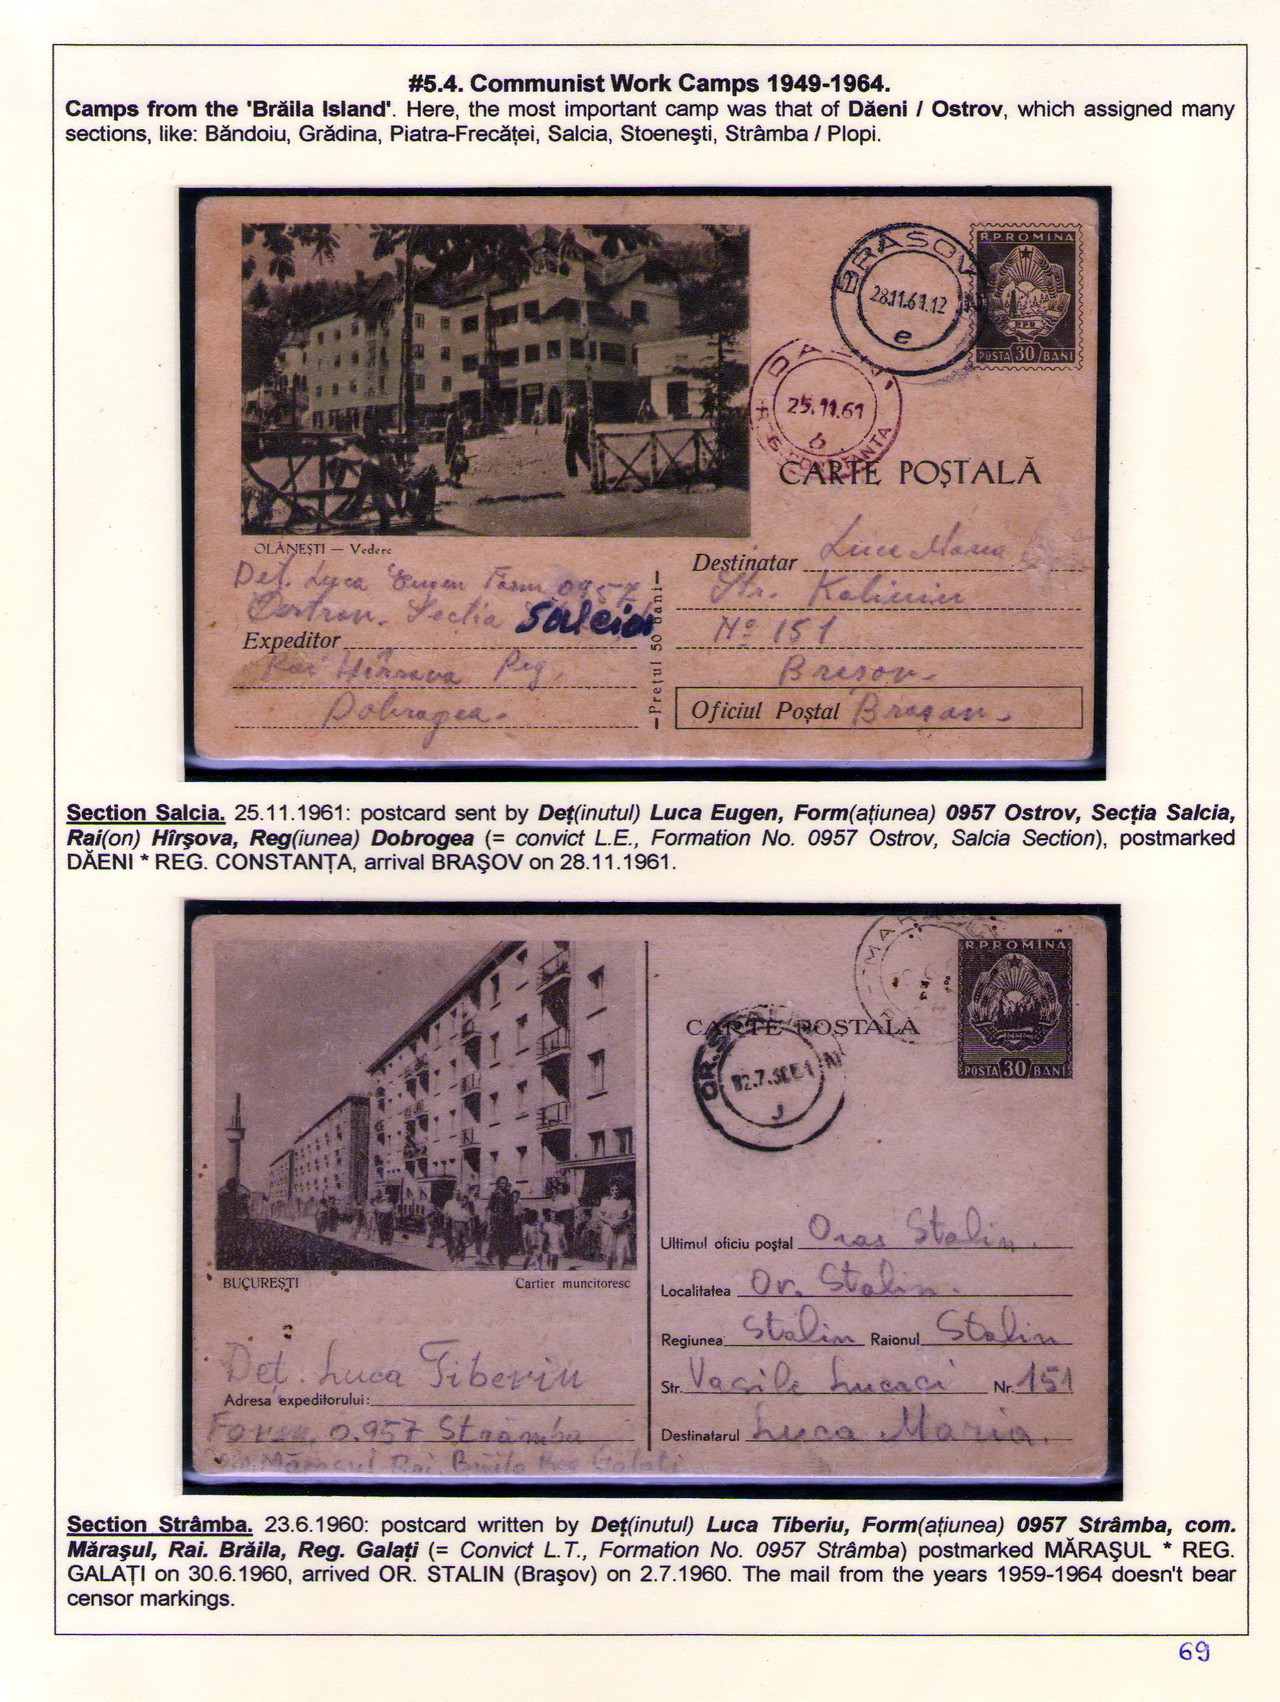 #5.4. Communist Work Camps 1949-1964.
Camps from the 'Brăila Island'. Here, the most important camp was that of Dăeni / Ostrov, which assigned many
sections, like: Băndoiu, Grădina, Piatra-Frecăţei, Salcia, Stoeneşti, Strâmba / Plopi.
BRASOV
28.11.61.12
e
R.P.ROMINA
RPR
POSTA 30 BANI
25.11.61
b
CONSTANTA
CARTE POŞTALĂ
OLĂNEŞTI — Vedere
Det. Luca Eugen Form 0957
Secţia Salcia
Expeditor
Rai Hîrsova Reg.
Dobrogea.
—Preţul 50 bani—
Destinatar Luca Maria
Str. Kalinin
No 151
Brasov.
Oficiul Poştal Braşov.
Section Salcia. 25.11.1961: postcard sent by Deţ(inutul) Luca Eugen, Form(aţiunea) 0957 Ostrov, Secţia Salcia,
Rai(on) Hîrşova, Reg(iunea) Dobrogea (= convict L.E., Formation No. 0957 Ostrov, Salcia Section), postmarked
DĂENI * REG. CONSTANŢA, arrival BRAŞOV on 28.11.1961.
R.P.ROMINA
POSTA 30 BANI
CARTE POSTALĂ
OR.
J
BUCUREŞTI
Cartier muncitoresc
Deţ. Luca Tiberiu
Adresa expeditorului:
Form. 0.957 Strâmba
Mărasul Rai. Brăila Reg Galaţi
Ultimul oficiu poştal Oras Stalin.
Localitatea Or. Stalin.
Regiunea Stalin Raionul Stalin
Str. Vasile Lucaci Nr. 151
Destinatarul Luca Maria.
Section Strâmba. 23.6.1960: postcard written by Deţ(inutul) Luca Tiberiu, Form(aţiunea) 0957 Strâmba, com.
Măraşul, Rai. Brăila, Reg. Galaţi (= Convict L.T., Formation No. 0957 Strâmba) postmarked MĂRAŞUL * REG.
GALAŢI on 30.6.1960, arrived OR. STALIN (Braşov) on 2.7.1960. The mail from the years 1959-1964 doesn't bear
censor markings.
69